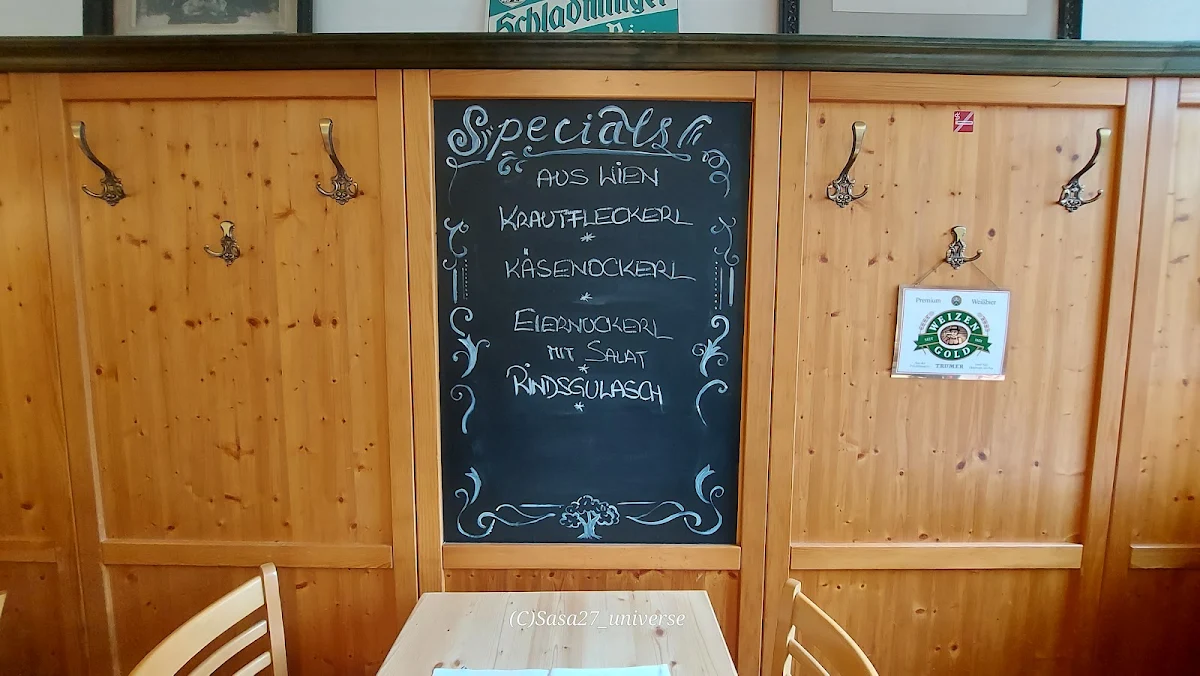 Schladminger
Specials
AUS WIEN
KRAUTFLECKERL
*
KÄSENOCKERL
*
EIERNOCKERL
MIT SALAT
*
RINDSGULASCH
*
Premium Weißbier
WEIZEN
GOLD
TRUMER
(C)Sasa27_universe